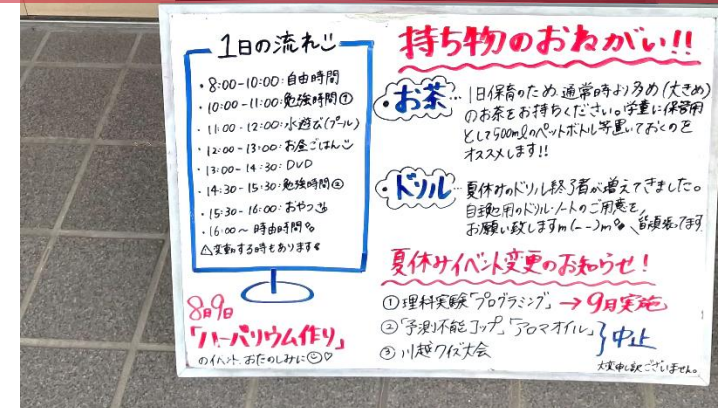 1日の流れ
・8:00-10:00:自由時間
・10:00-11:00:勉強時間①
・11:00-12:00:水遊び(プール)
・12:00-13:00:お昼ごはん
・13:00-14:30:DVD
・14:30-15:30:勉強時間②
・15:30-16:00:おやつ
・16:00～ 時由時間
△変動する時もあります
8月9日
「ハーバリウム作り」
のイベント、おたのしみに☺♡
持ち物のおねがい!!
・お茶… 1日保育のため、通常時より多め(大きめ)
のお茶をお持ちください。学童に保管用
として500mlのペットボトル等置いておくのを
オススメします!!
・ドリル… 夏休みのドリル終了者が増えてきました。
自主用のドリル・ノートのご用意を、
お願い致しますm(--)m 皆頑張ってます
夏休みイベント変更のお知らせ!
①理科実験「プログラミング」→9月実施
②「予測不能コップ」「アロマオイル」
③川越クイズ大会
}中止
大変申し訳ございません。